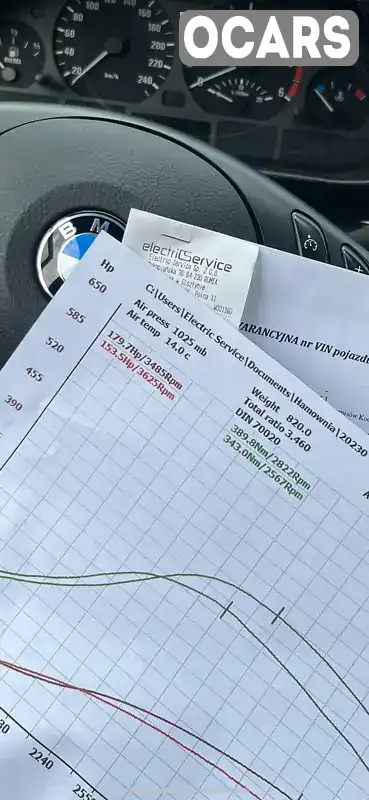 OCARS
180
160
140
200
60
220
40
240
20
km/h
6
BM
electricservice
Electric-Service Sp. z o.o.
WARANCYJNA nr VIN pojazdu
Hp
650
585
520
455
390
C:\Users\Electric Service\Documents\Hamownia\20230
Air press 1025 mb
Air temp 14.0 c
179.7Hp/3485Rpm
153.5Hp/3625Rpm
Weight 820.0
Total ratio 3.460
DIN 70020
389.8Nm/2822Rpm
343.0Nm/2567Rpm
2240